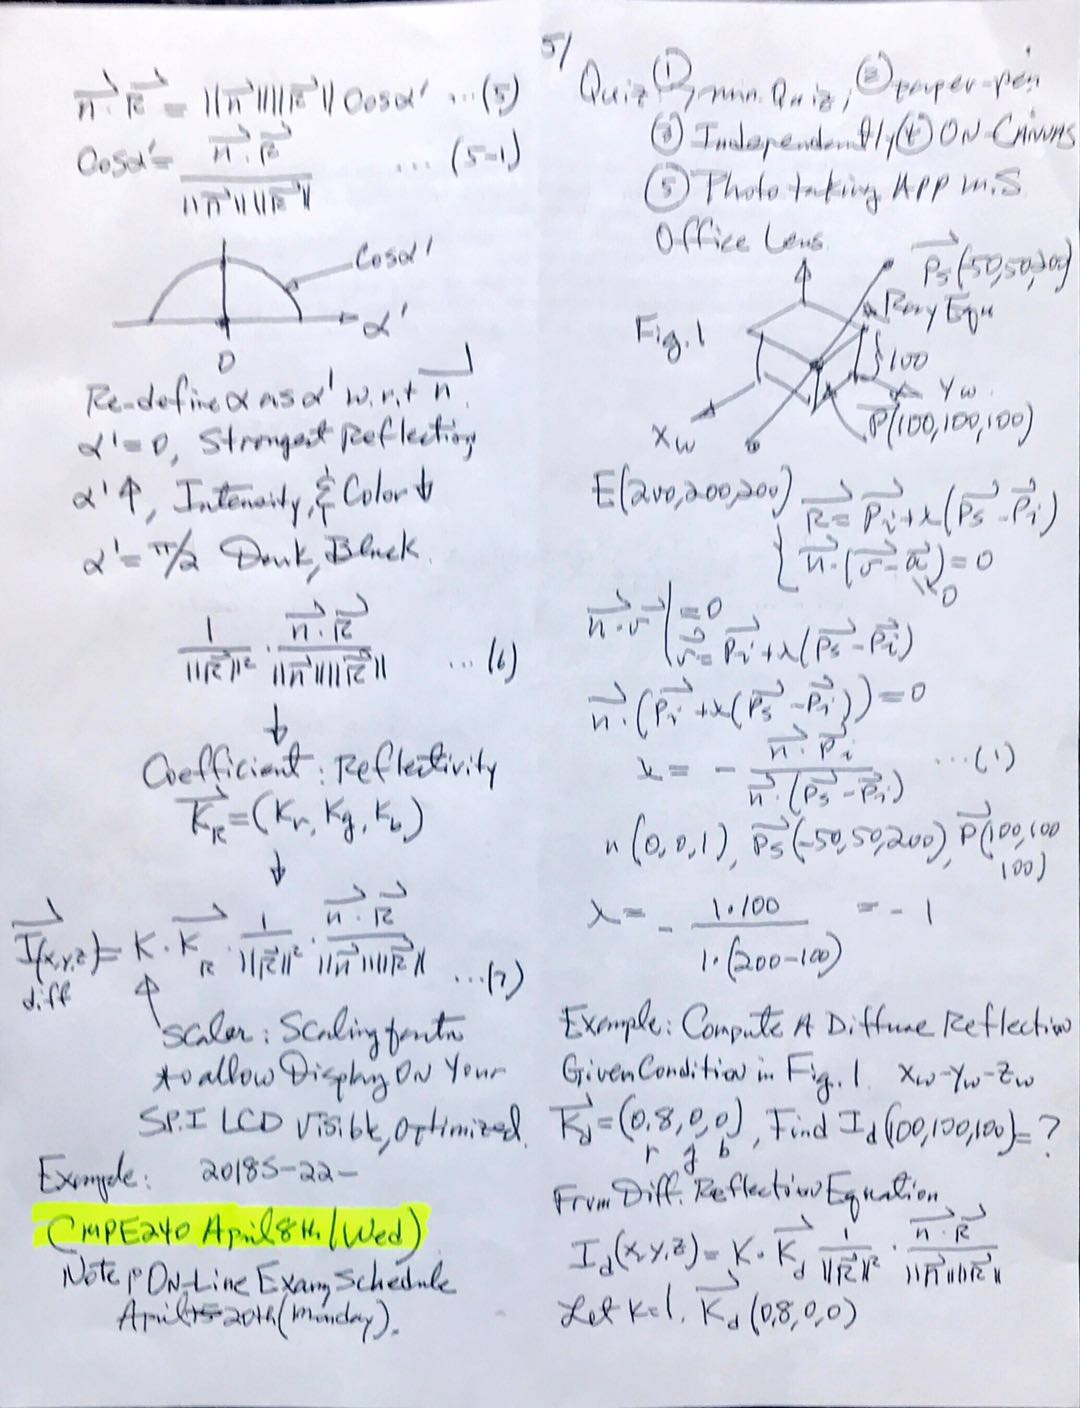 n · R = ||n|| ||R|| Cosα' ... (5)
Cosα' = n · R / ||n|| ||R|| ... (5-1)
Cosα'
α'
0
Re-define α as α' w.r.t n.
α'=0, Strongest Reflection
α'↑, Intensity, & Color ↓
α'=π/2 Dark, Black.
1/||R||² · n · R / ||n|| ||R|| ... (6)
↓
Coefficient: Reflectivity
K_R = (Kr, Kg, Kb)
↓
I(x,y,z) diff = K · K_R · 1/||R||² · n · R / ||n|| ||R|| ... (7)
Scalar: Scaling factor
to allow Display ON Your
SPI LCD Visible, Optimized.
Example: 2018S-22-
CMPE240 April 8th (Wed)
Note 1° ON-Line Exam Schedule
April 15 20th (Monday).
5/
Quiz ① min. Quiz; ② paper-pen
③ Independently ④ ON-CANVAS
⑤ Photo taking APP M.S.
Office Lens.
Ps(-50,50,200)
Ray Equ
Fig.1
100
Yw
Xw
P(100,100,100)
E(200,200,200)
R = Pi + λ(Ps - Pi)
n · (r - a) = 0
0
n · r | = 0
r = Pi + λ(Ps - Pi)
n · (Pi + λ(Ps - Pi)) = 0
λ = - n · Pi / n · (Ps - Pi) ... (1)
n(0,0,1), Ps(-50,50,200), P(100,100
100)
λ = - 1·100 / 1·(200-100) = -1
Example: Compute A Diffuse Reflection
Given Condition in Fig. 1. Xw-Yw-Zw
Kd = (0.8,0,0), Find Id(100,100,100) = ?
r g b
From Diff. Reflection Equation
Id(x,y,z) = K · Kd 1/||R||² · n · R / ||n|| ||R||
Let K=1. Kd (0.8,0,0)